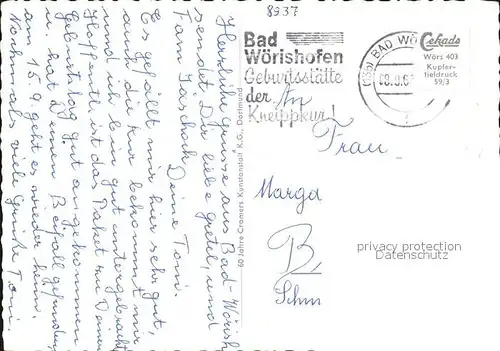 8937
Bad
Wörishofen
Geburtsstätte
der
Kneippkur!
BAD WÖ
Cekade
Wörs 403
Kupfer-
tiefdruck
59/3
An
Frau
Marga
B.
Schm
privacy protection
Datenschutz
60 Jahre Cramers Kunstanstalt K.G., Dortmund
Herzliche Grüsse aus Bad-Wörish
sendet Dir, liebe Gretel, und
Fam.
Deine Toni.
Es gefällt mir hier sehr gut,
auch die Kur bekommt mir
und ich bin gut untergebracht
Hoffentlich ist das Paket zu Deinem
Geburtstag gut angekommen
u. hat Deinen Beifall gefunden
am 15.9. geht es wieder heim.
Nochmals viele Grüße Toni.